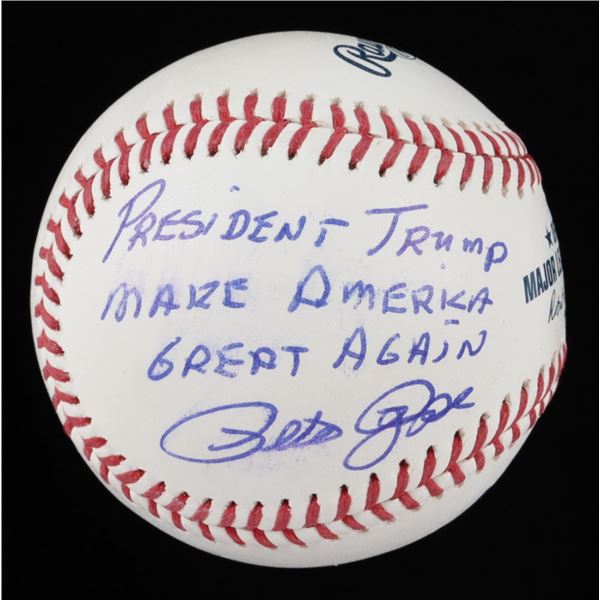 PRESIDENT TRUMP
MAKE AMERICA
GREAT AGAIN
Pete Rose
MAJOR LE